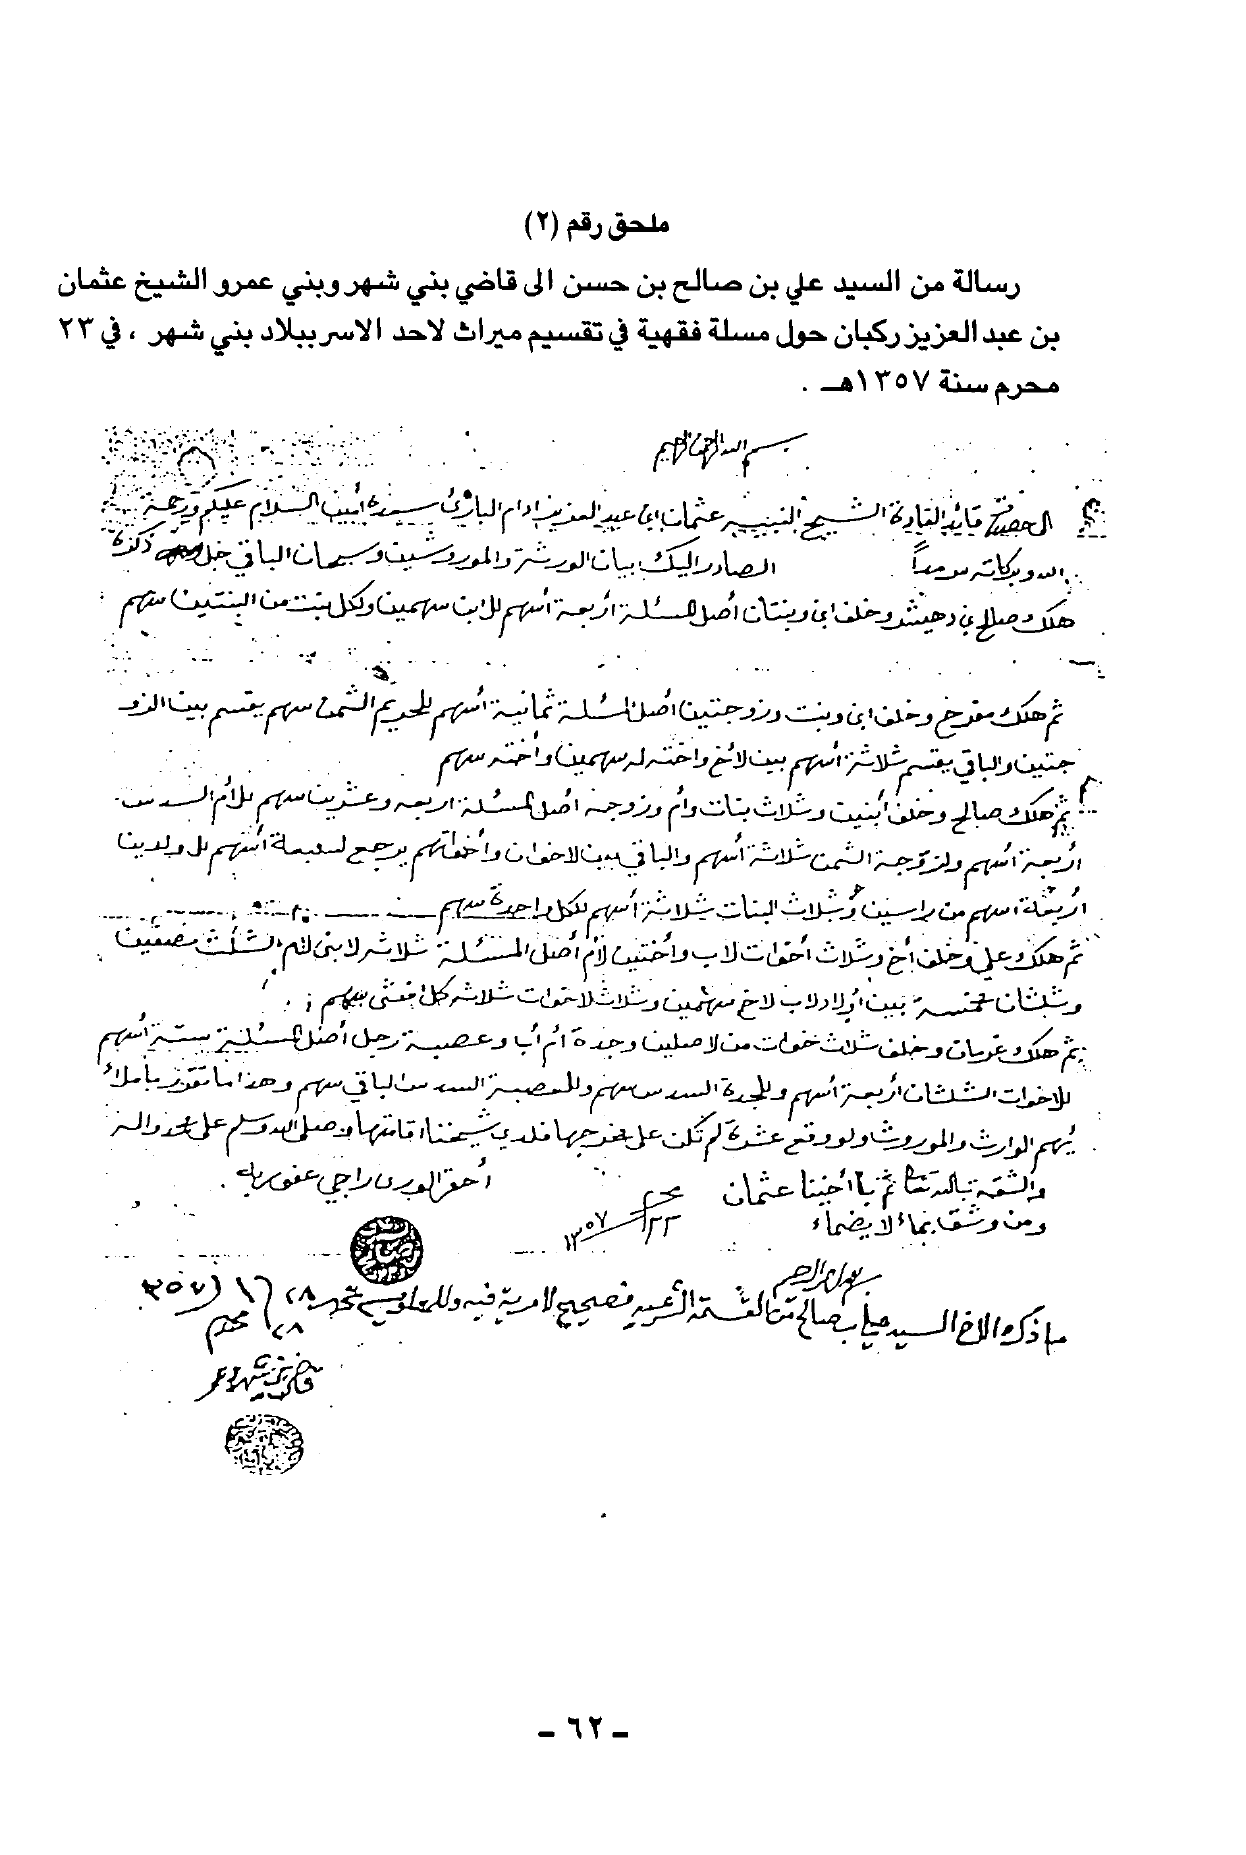 ملحق رقم (٢)
رسالة من السيد علي بن صالح بن حسن الى قاضي بني شهر وبني عمرو الشيخ عثمان
بن عبد العزيز ركبان حول مسلة فقهية في تقسيم ميراث لاحد الاسر ببلاد بني شهر ، في ٢٣
محرم سنة ١٣٥٧هـ .
بسم الله الرحمن الرحيم
الى حضرة قايد القادة الشيخ النبيه عثمان ابن عبد العزيز ادام الباري أمين السلام عليكم ورحمة
الله وبركاته سرمداً الصادر اليك بيان الورثة والموروثين وسبحان الباقي جل ذكره
هلك صالح بن دهيش وخلف ابن وبنتان أصل المسئلة أربعة أسهم للابن سهمين ولكل بنت من البنتين سهم
ثم هلك مفرح وخلف ابن وبنت وزوجتين أصل المسئلة ثمانية أسهم للحريم الثمن سهم يقسم بين الزو
جتين والباقي يقسم ثلاثة أسهم بين لاخ واخته له سهمين وأخته سهم
ثم هلك صالح وخلف أبنين وثلاث بنات وأم وزوجة أصل المسئلة اربعه وعشرين سهم للأم السدس
أربعة أسهم ولزوجة الثمن ثلاثة أسهم والباقي بين لاخوان وأخواتهم يرجع لسبعة أسهم للولدين
أربعة اسهم من راسين وثلاث البنات ثلاثة أسهم لكل واحدة سهم
ثم هلك علي وخلف أخ وثلاث أخوات لاب وأختين لأم أصل المسئلة ثلاثه لابني لأم الثلث نصفين
وثلثان خمسة بين أولاد لاب لاخ سهمين وثلاث لاخوات ثلاثه كل انثى سهم
ثم هلك عريان وخلف ثلاث خوات من لاصلين وجدة أم أب وعصبة رجل أصل المسئلة ستة أسهم
للاخوات الثلثان أربعة أسهم وللجدة السدس سهم وللعصبة السدس الباقي سهم وهذا ما تقرر باملائ
يهم الوارث والموروث ولو وقع عثرة لم تكن على مخرجها فلدي شيخنا اقامتها وصلى الله وسلم على محمد وآله
والثقة بالله ثم يا أخينا عثمان أحقر الورى راجي عفو ربه
ومن وثق بماء لا يضماء ٢٣ محرم ١٣٥٧
بسم الله الرحمن الرحيم
ما ذكره الاخ السيد علي بن صالح من القسمة الشرعيه فصحيح لا مرية فيه وللمعلومية تحرر ٢٨/١/٣٥٧
٢٨ محرم
قاضي بني شهر وعمر